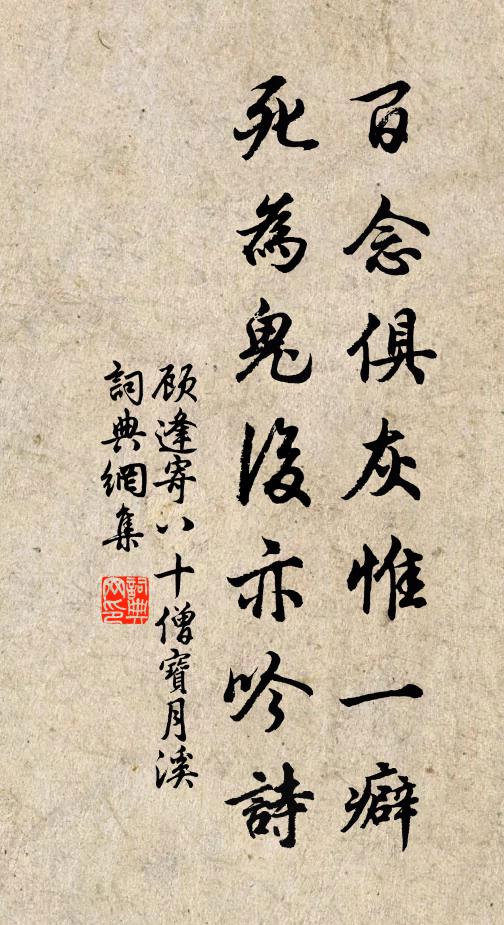 百念俱灰惟一癖
死為鬼後亦吟詩
顾逢寄八十僧寶月溪
詞典網集
詞典網印